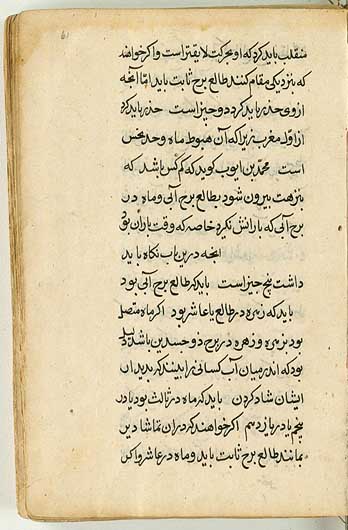 منقلب باید کرد که او بحرکت لایقتر است و اکر خواهند
که بنزدیکی مقام کنند طالع برج ثابت باید اما آنچه
ازوی حذر باید کرد دو چیز است حذر باید کرد
از اول مغرب زیرا که آن هبوط ماه و حد نحس
است محمد بن ایوب کوید که کم کس باشد که
بنزهت بیرون شود بطالع برج آبی و ماه در
برج آبی که بارانش نکرد خاصه که وقت باران بود
آنچه درین باب نکاه باید
داشت پنج چیز است باید که طالع برج آبی بود
باید که زهره در طالع یا عاشر بود اکر ماه متصل
بود بزهره و زهره در برج دو جسدین باشد دلیل
بود که اندر میان آب کسانی را بیند که بدیدن
ایشان شاد کردن باید که ماه در ثالث بود یا در
پنجم یا در یازدهم اکر خواهند که در آن تماشا دیر
بمانند طالع برج ثابت باید و ماه در عاشر و اکر